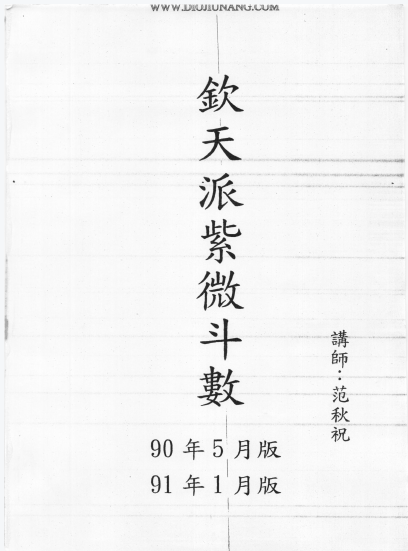 WWW.DIOJIUNANG.COM
欽天派紫微斗數
講師：范秋祝
90 年 5 月版
91 年 1 月版